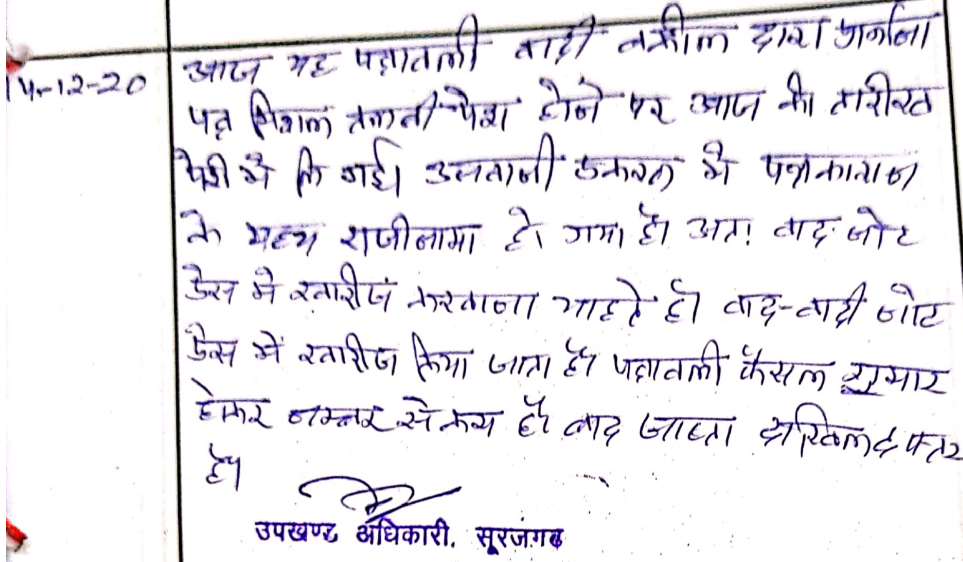 14-12-20
आज यह पत्रावली वादी वकील द्वारा प्रार्थना
पत्र मिशल तलबी पेश होने पर आज की तारीख
पेशी में ली गई। उनवानी प्रकरण में पक्षकारान
के मध्य राजीनामा हो गया है। अतः वाद नोट
प्रेस में खारीज करवाना चाहते है। वाद-वादी नोट
प्रेस में खारीज किया जाता है। पत्रावली फैसल शुमार
होकर नम्बर से कम हो। बाद जाब्ता दाखिल दफ्तर
हो।
उपखण्ड अधिकारी, सूरजगढ